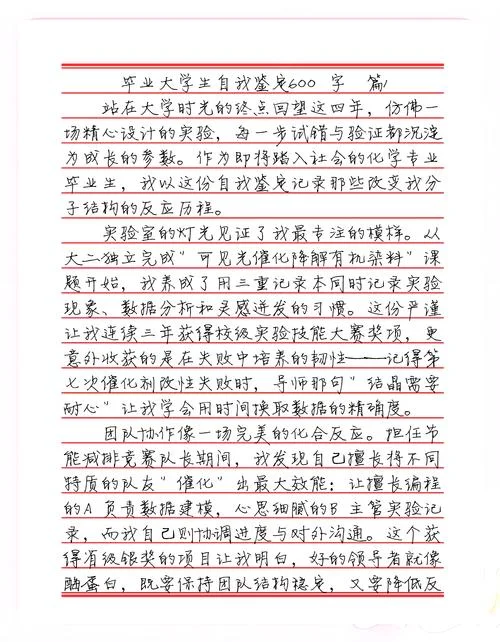 毕业大学生自我鉴定600 字 篇1
站在大学时光的终点回望这四年，仿佛一
场精心设计的实验，每一步试错与验证都沉淀
为成长的参数。作为即将踏入社会的化学专业
毕业生，我以这份自我鉴定记录那些改变我分
子结构的反应历程。
实验室的灯光见证了我最专注的模样。从
大二独立完成"可见光催化降解有机染料"课
题开始，我养成了用三重记录本同时记录实验
现象、数据分析和灵感迸发的习惯。这份严谨
让我连续三年获得校级实验技能大赛奖项，更
意外收获的是在失败中培养的韧性——记得第
七次催化剂改性失败时，导师那句"结晶需要
耐心"让我学会用时间换取数据的精确度。
团队协作像一场完美的化合反应。担任节
能减排竞赛队长期间，我发现自己擅长将不同
特质的队友"催化"出最大效能：让擅长编程
的A 负责数据建模，心思细腻的B 主管实验记
录，而我自己则协调进度与对外沟通。这个获
得省级银奖的项目让我明白，好的领导者就像
酶蛋白，既要保持团队结构稳定，又要降低反